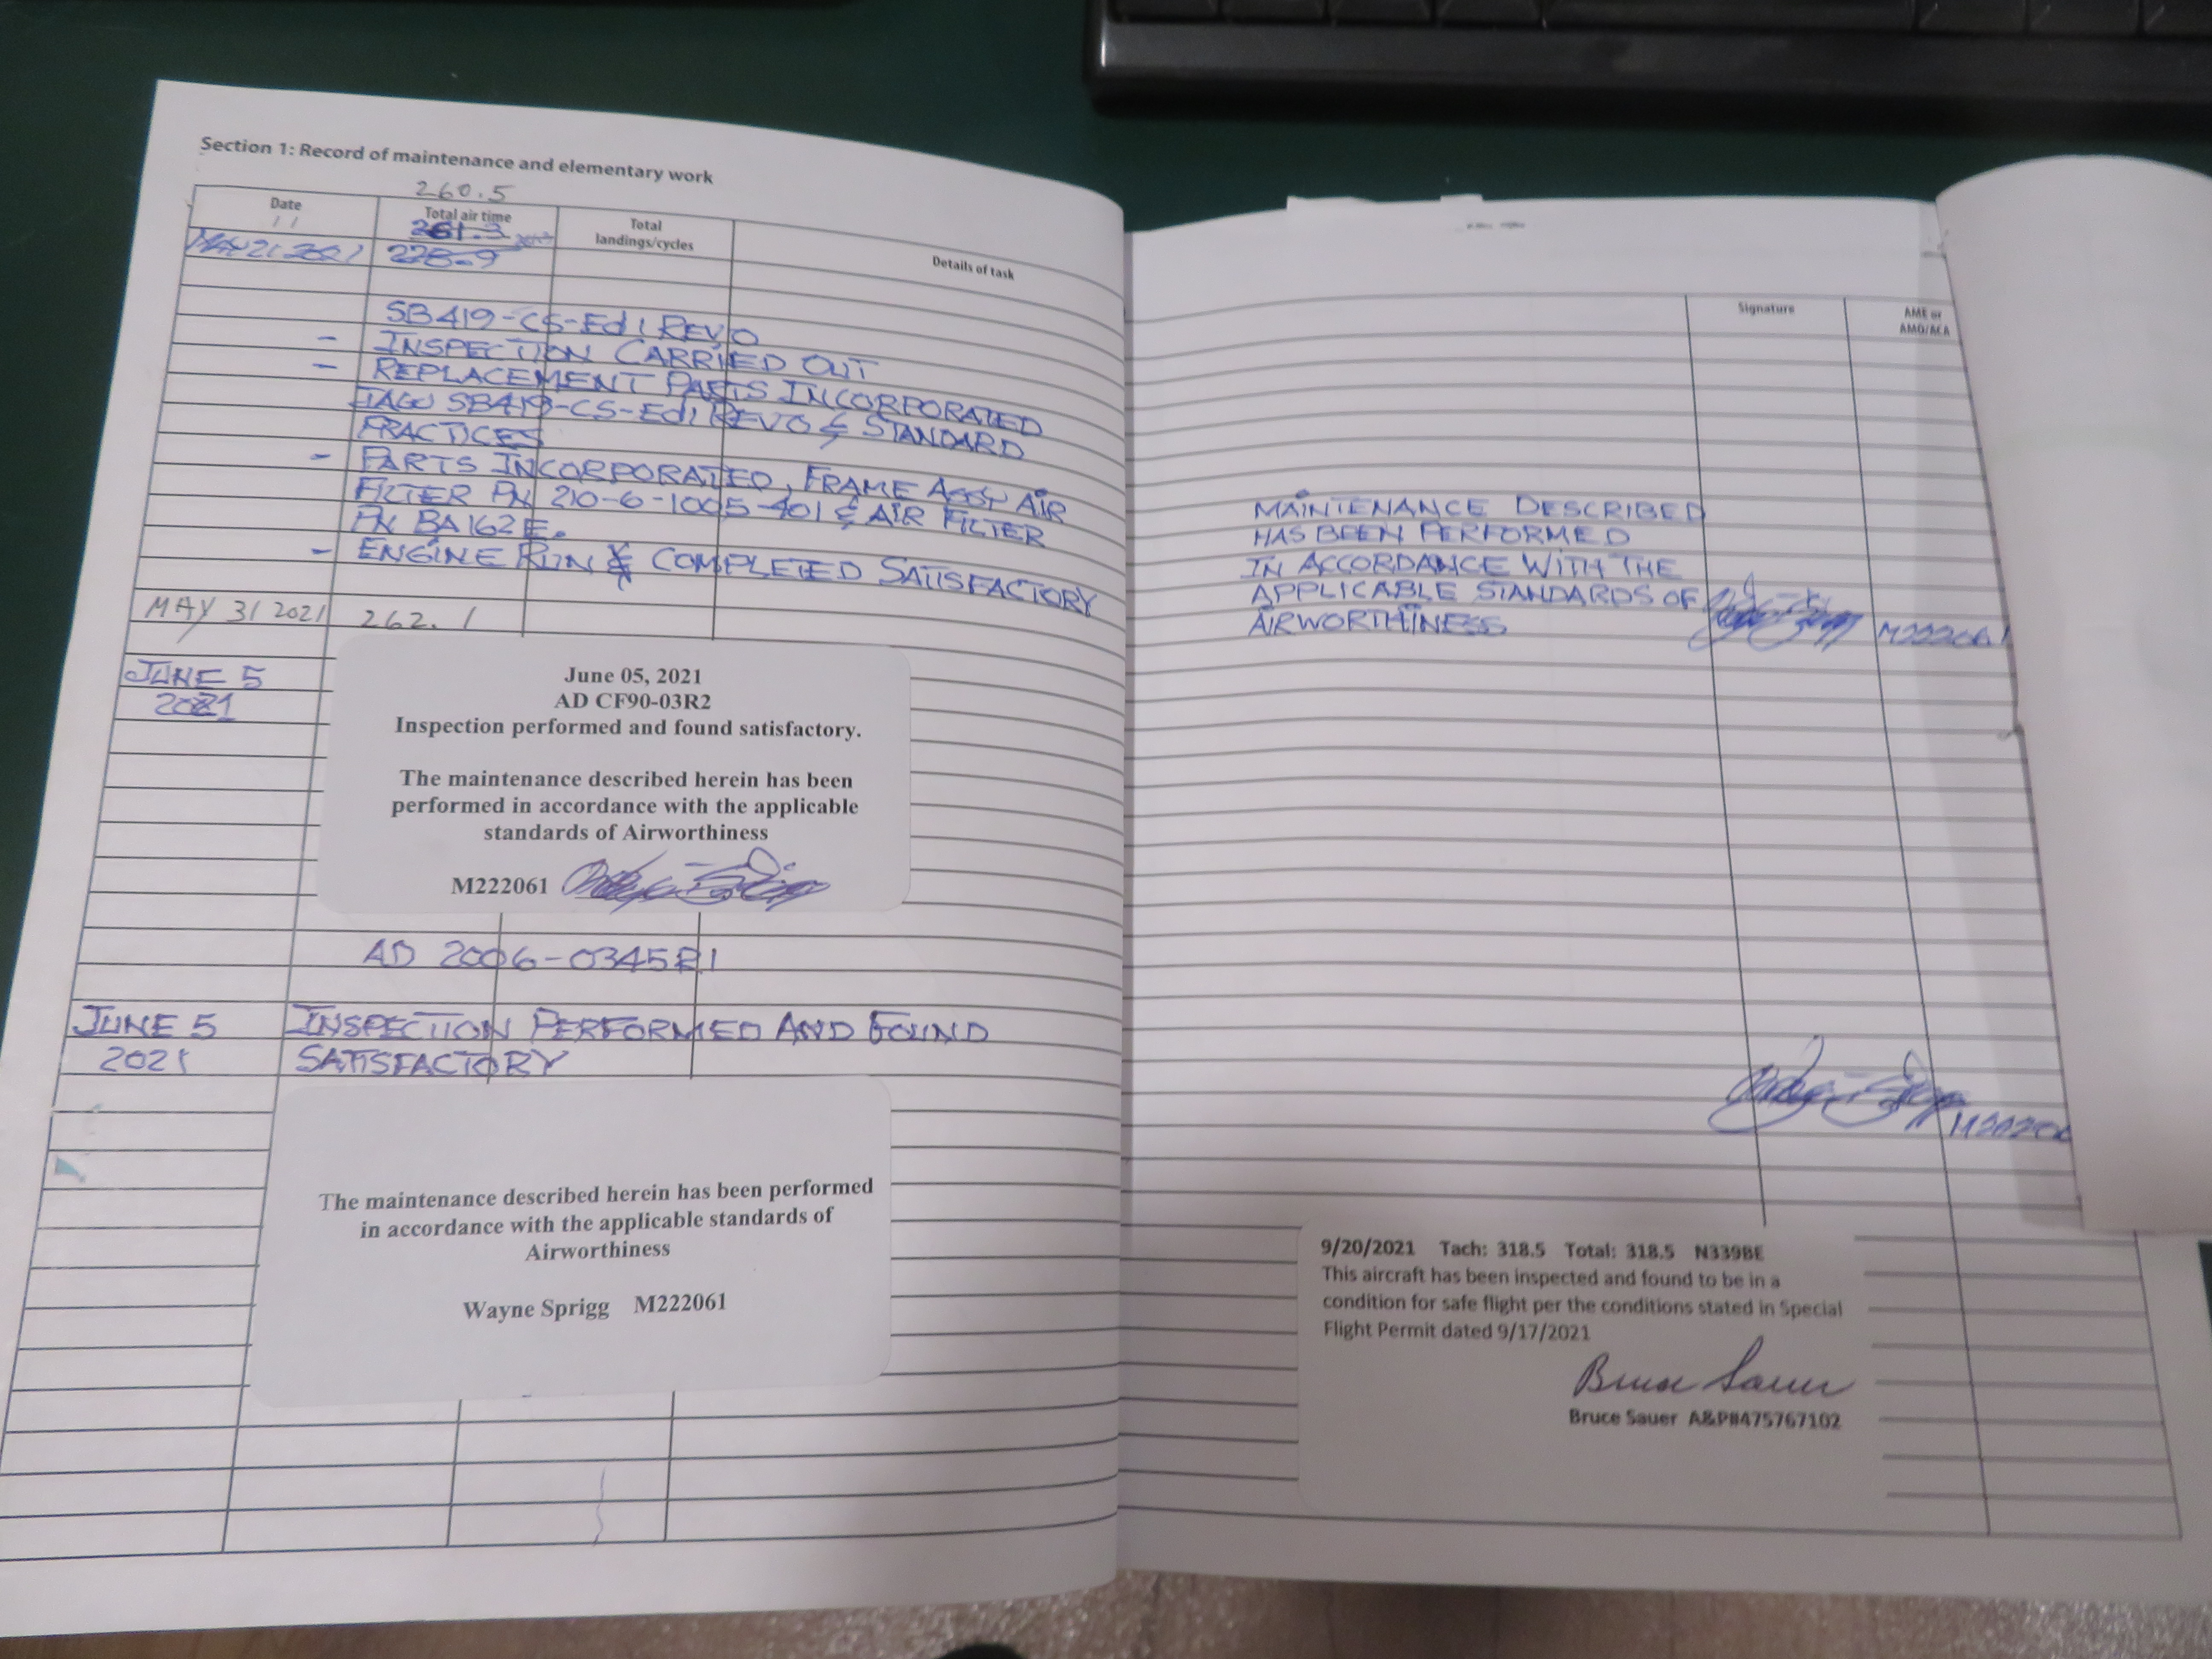 Section 1: Record of maintenance and elementary work
260.5
Date
Total air time
Total
landings/cycles
Details of task
261.3
MAY 21 2021
228.9
SB419-CS-Ed1 REV0
- INSPECTION CARRIED OUT
- REPLACEMENT PARTS INCORPORATED
IAW SB419-CS-Ed1 REV0 & STANDARD
PRACTICES
- PARTS INCORPORATED, FRAME ASSY AIR
FILTER PN 210-6-1005-401 & AIR FILTER
PN BA162E.
- ENGINE RUN & COMPLETED SATISFACTORY
MAY 31 2021 262.1
JUNE 5
2021
June 05, 2021
AD CF90-03R2
Inspection performed and found satisfactory.
The maintenance described herein has been
performed in accordance with the applicable
standards of Airworthiness
M222061
AD 2006-0345R1
JUNE 5 INSPECTION PERFORMED AND FOUND
2021 SATISFACTORY
The maintenance described herein has been performed
in accordance with the applicable standards of
Airworthiness
Wayne Sprigg M222061
Signature
AME or
AMO/ACA
MAINTENANCE DESCRIBED
HAS BEEN PERFORMED
IN ACCORDANCE WITH THE
APPLICABLE STANDARDS OF
AIRWORTHINESS
M222061
9/20/2021 Tach: 318.5 Total: 318.5 N339BE
This aircraft has been inspected and found to be in a
condition for safe flight per the conditions stated in Special
Flight Permit dated 9/17/2021
Bruce Sauer
Bruce Sauer A&P#475767102